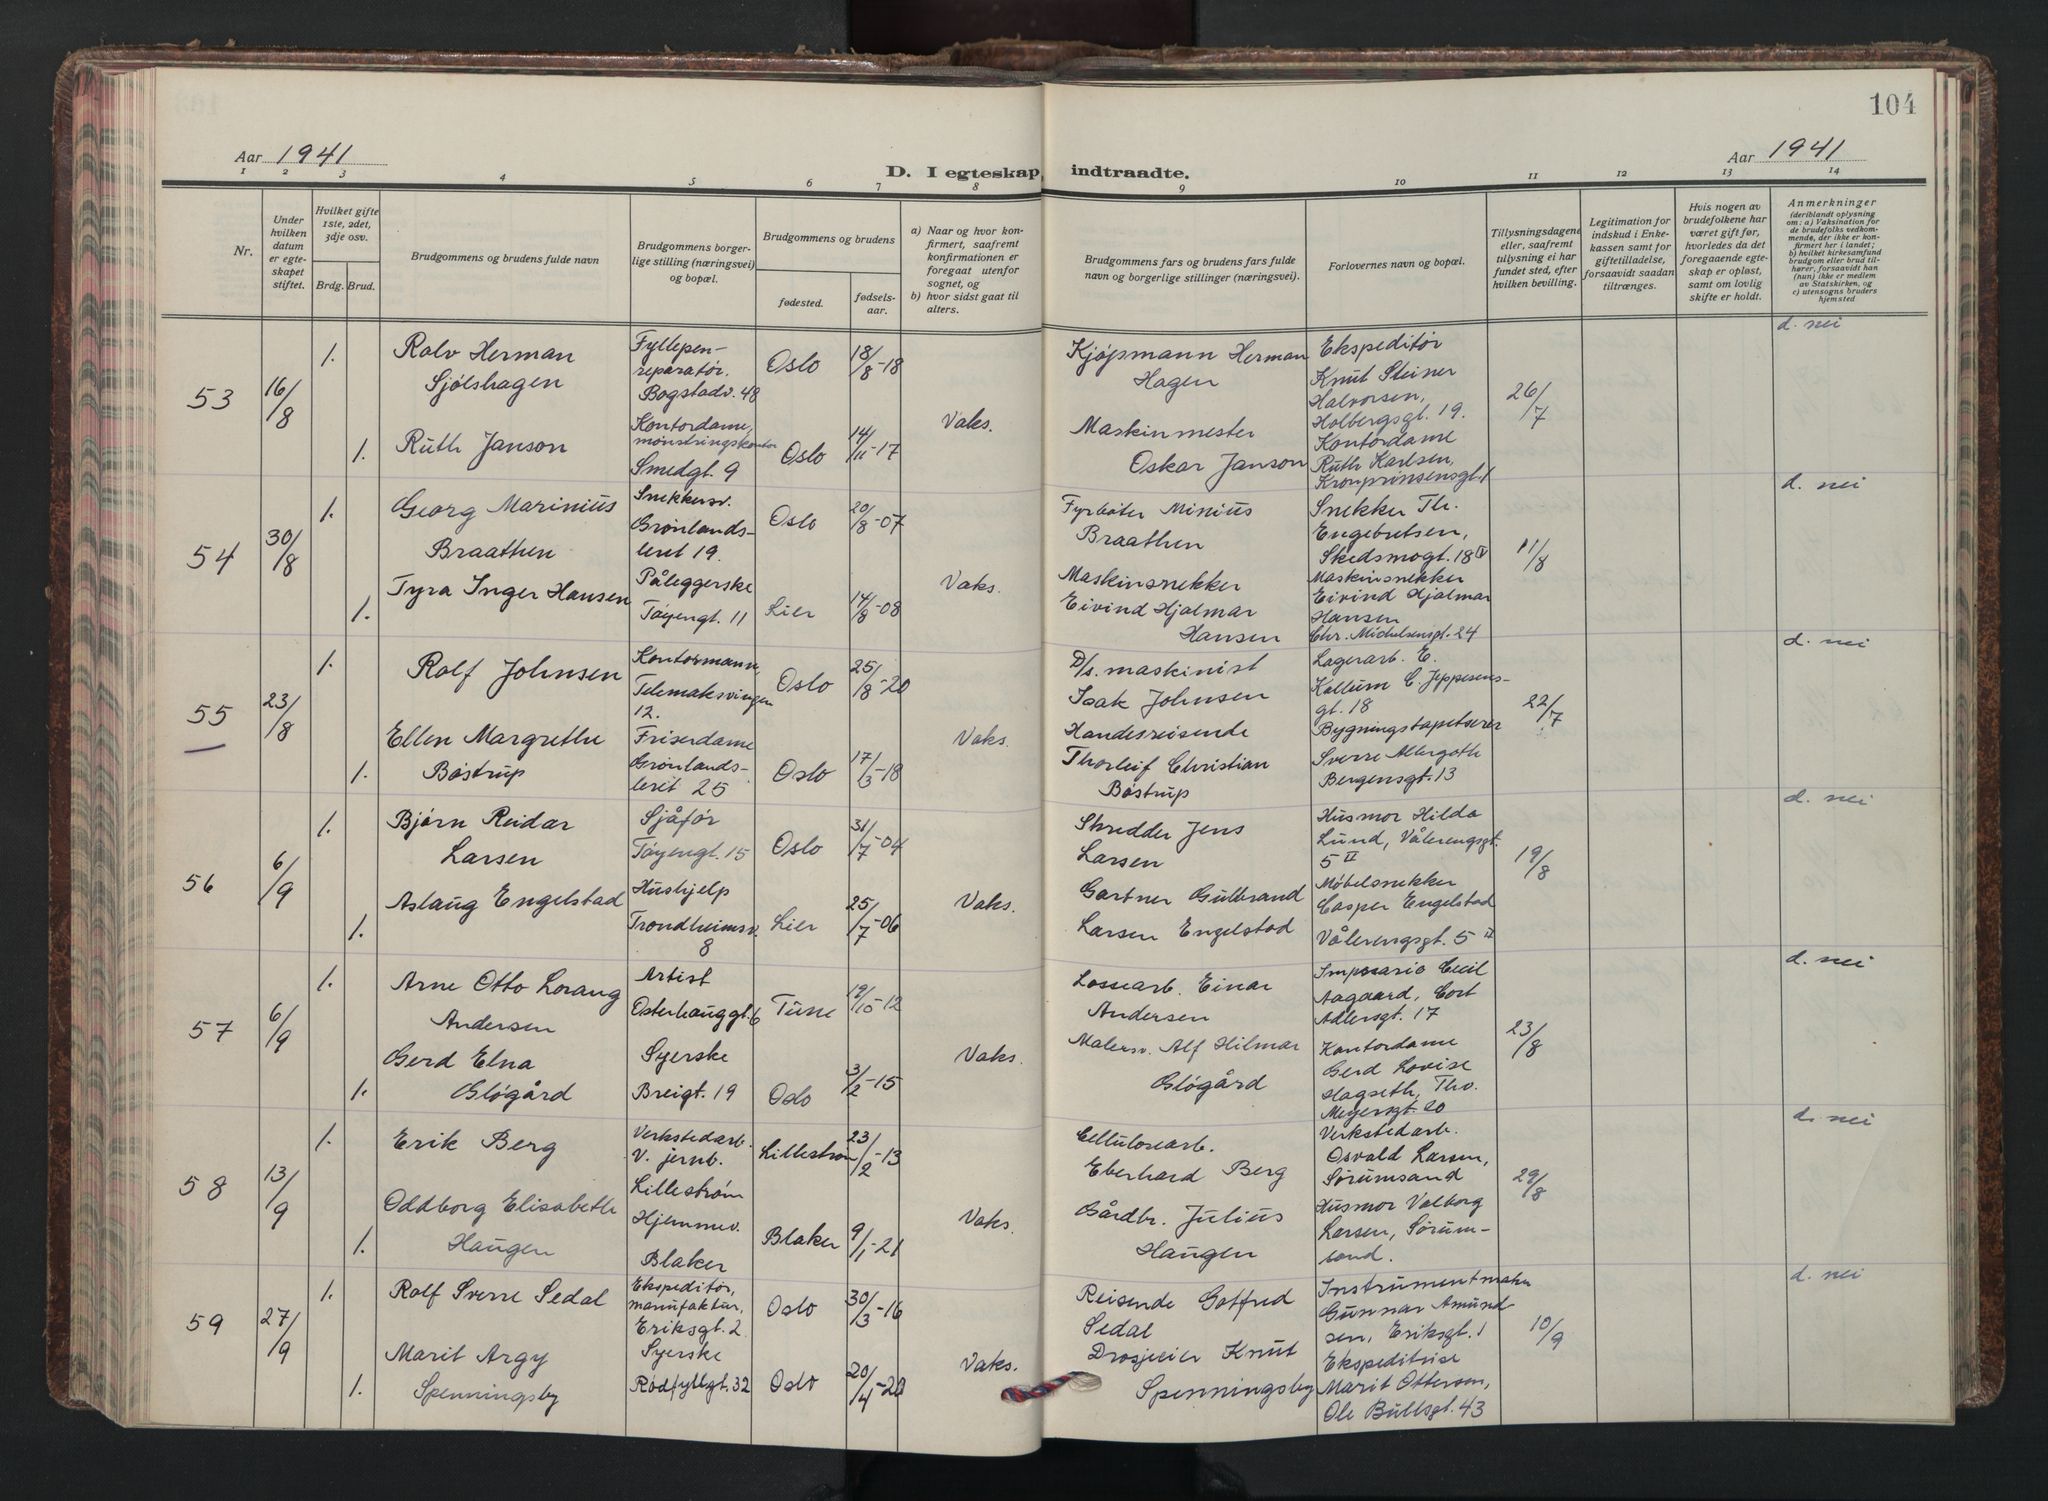 104
Aar 1941
D. I egteskap indtraadte.
Aar 1941
1 2 3 4 5 6 7 8 9 10 11 12 13 14
Nr.
Under
hvilken
datum
er egte-
skapet
stiftet.
Hvilket gifte
1ste, 2det,
3dje osv.
Brdg. Brud.
Brudgommens og brudens fulde navn
Brudgommens borger-
lige stilling (næringsvei)
og bopæl.
Brudgommens og brudens
fødested.
fødsels-
aar.
a) Naar og hvor kon-
firmert, saafremt
konfirmationen er
foregaat utenfor
sognet, og
b) hvor sidst gaat til
alters.
Brudgommens fars og brudens fars fulde
navn og borgerlige stillinger (næringsvei).
Forlovernes navn og bopæl.
Tillysningsdagene
eller, saafremt
tillysning ei har
fundet sted, efter
hvilken bevilling.
Legitimation for
indskud i Enke-
kassen samt for
giftetilladelse,
forsaavidt saadan
tiltrænges.
Hvis nogen av
brudefolkene har
været gift før,
hvorledes da det
foregaaende egte-
skap er opløst,
samt om lovlig
skifte er holdt.
Anmerkninger
(deriblandt oplysning
om: a) Vaksination for
de brudefolks vedkom-
mende, der ikke er kon-
firmert her i landet;
b) hvilket kirkesamfund
brudgom eller brud til-
hører, forsaavidt han
(hun) ikke er medlem
av Statskirken, og
c) utensogns bruders
hjemsted
53
16/8
1.
Rolv Herman
Sjølshagen
Fyllepen-
reparatør.
Bogstadv. 48
Oslo
18/8-18
1.
Ruth Janson
Kontordame,
mønstringskontor
Smedgt. 9
Oslo
14/11-17
Vaks.
Kjøpmann Herman
Hagen
Maskinmester
Oskar Janson
Ekspeditør
Knut Steiner
Halvorsen,
Holbergsgt. 19.
Kontordame
Ruth Karlsen,
Kronprinsensgt. 1
26/7
d. nei
54
30/8
1.
Georg Marinius
Braathen
Snekkersv.
Grønlands-
leret 19.
Oslo
20/8-07
1.
Tyra Inger Hansen
Påleggerske
Tøyengt. 11
Lier
14/8-08
Vaks.
Fyrbøter Minius
Braathen
Maskinsnekker
Eivind Hjalmar
Hansen
Snekker Th.
Engebretsen,
Skedsmogt. 18 IV
Maskinsnekker
Eivind Hjalmar
Hansen
Chr. Michelsensgt. 24
11/8
d. nei
55
23/8
1.
Rolf Johnsen
Kontormann,
Telemaksvingen
12.
Oslo
25/8-20
1.
Ellen Margrethe
Bøstrup
Friserdame
Grønlands-
leret 25
Oslo
17/3-18
Vaks.
D/s. maskinist
Isak Johnsen
Handesreisende
Thorleif Christian
Bøstrup
Lagerarb. E.
Kallum C. Jeppesens-
gt. 18
Bygningstapetserer
Sverre
Bergensgt. 13
22/7
d. nei
56
6/9
1.
Bjørn Reidar
Larsen
Sjåfør
Tøyengt. 15
Oslo
31/7-04
1.
Aslaug Engelstad
Hushjelp
Trondheimsv.
8
Lier
25/7-06
Vaks.
Skredder Jens
Larsen
Gartner Gulbrand
Larsen Engelstad
Husmor Hilda
Lund, Vålerengsgt.
5 II
Møbelsnekker
Casper Engelstad
Vålerengsgt. 5 II
19/8
d. nei
57
6/9
1.
Arne Otto Lorang
Andersen
Artist
Osterhauggt. 6
Tune
19/10-12
1.
Gerd Elna
Gløgård
Syerske
Breigt. 19
Oslo
3/2-15
Vaks.
Lossearb. Einar
Andersen
Malersv. Alf Hilmar
Gløgård
Impresario Cecil
Aagaard, Cort
Adlersgt. 17
Kontordame
Gerd Lovise
Hagseth, Tho.
Meyersgt. 20
23/8
d. nei
58
13/9
1.
Erik Berg
Verkstedarb.
v. jernb.
Lillestrøm
Lillestrøm
23/2-13
1.
Oddborg Elisabeth
Haugen
Hjemmev.
Blaker
Blaker
9/1-21
Vaks.
Cellulosearb.
Eberhard Berg
Gårdbr. Julius
Haugen
Verkstedarb.
Osvald Larsen,
Sørumsand
Husmor Valborg
Larsen, Sørum-
sand.
29/8
d. nei
59
27/9
1.
Rolf Sverre Sedal
Ekspeditør,
manufaktur,
Eriksgt. 2
Oslo
30/3-16
1.
Marit Argy
Spenningsby
Syerske
Rødfyllgt. 32
Oslo
20/4-20
Vaks.
Reisende Gotfred
Sedal
Drosjeeier Knut
Spenningsby
Instrumentmaker
Gunnar Amund-
sen, Eriksgt. 1
Ekspeditrise
Marit Ottersen,
Ole Bullsgt. 43
10/9
d. nei